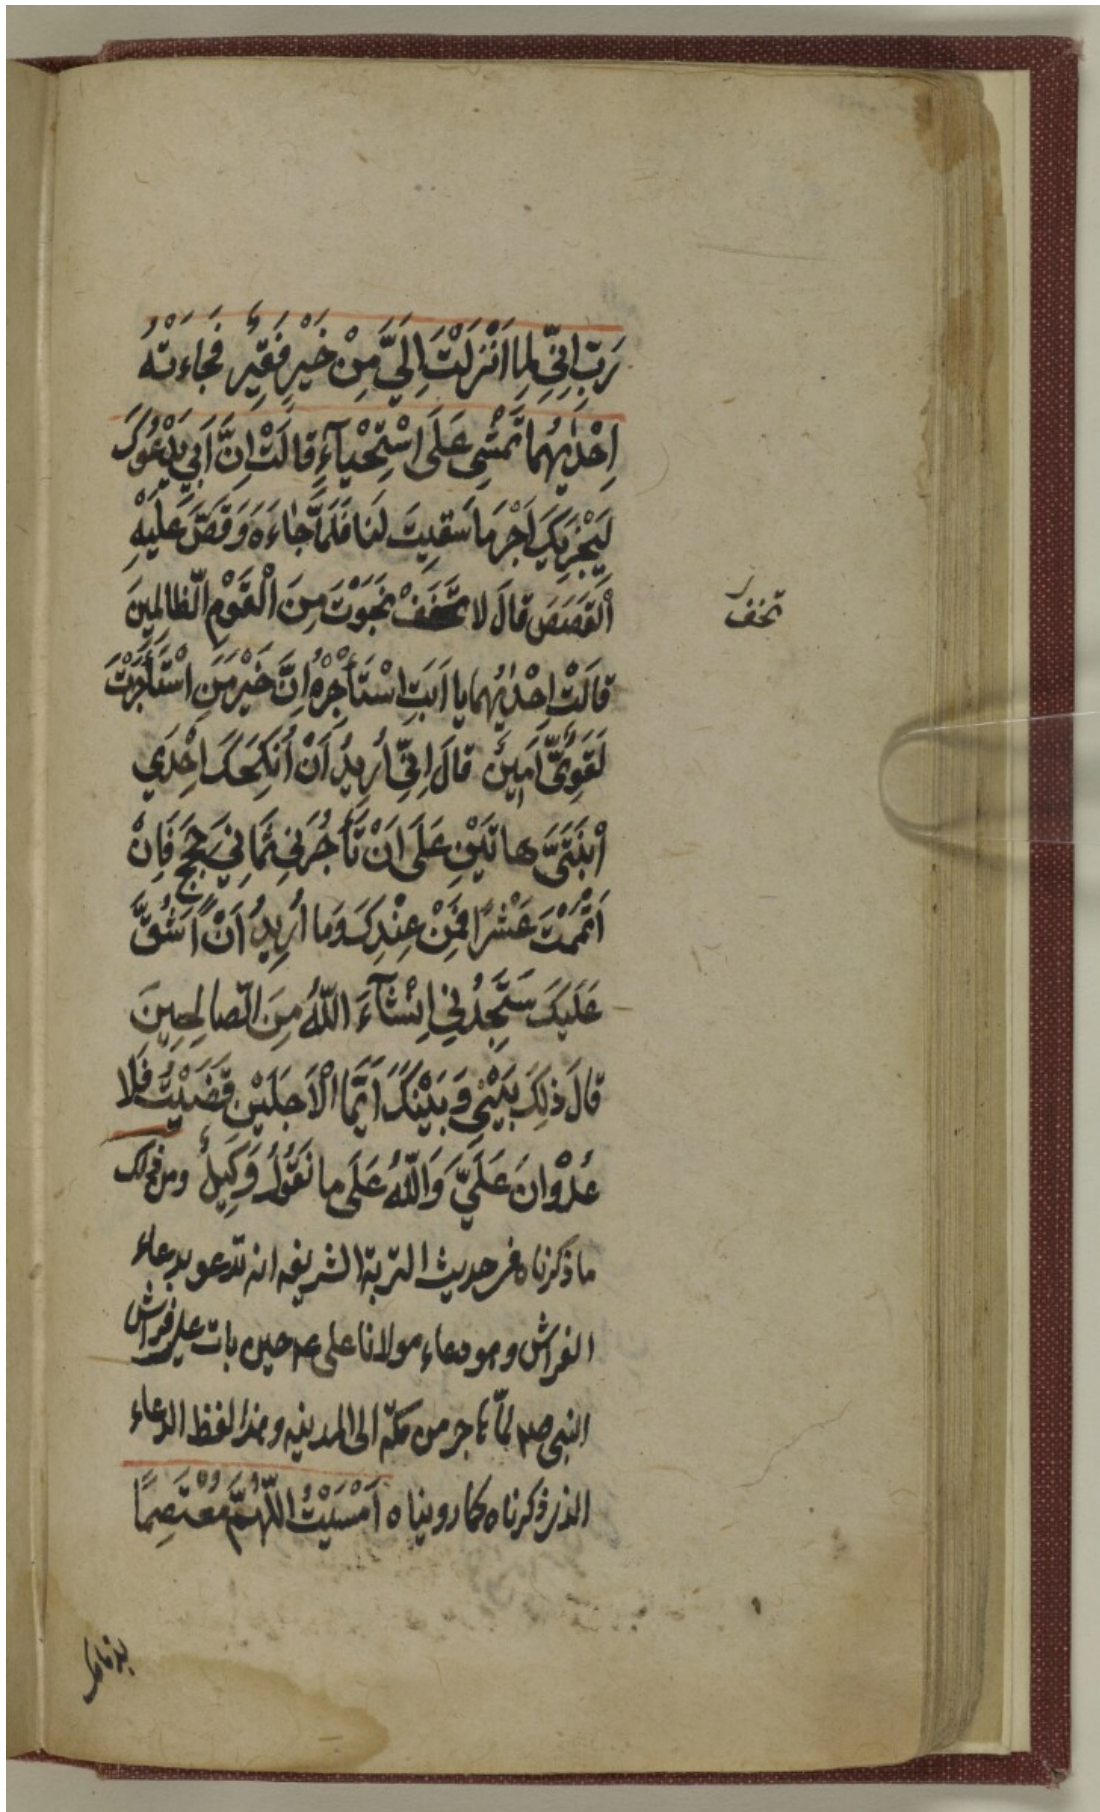 رَبِّ اِنِّي لِمَا اَنْزَلْتَ اِلَيَّ مِنْ خَيْرٍ فَقِيرٌ فَجَاءَتْهُ
اِحْدٰيهُمَا تَمْشِي عَلَى اسْتِحْيَآءٍ قَالَتْ اِنَّ اَبِي يَدْعُوكَ
لِيَجْزِيَكَ اَجْرَ مَا سَقَيْتَ لَنَا فَلَمَّا جَاءَهُ وَقَصَّ عَلَيْهِ
اَلْقَصَصَ قَالَ لَا تَخَفْ نَجَوْتَ مِنَ الْقَوْمِ الظَّالِمِينَ
تخف
قَالَتْ اِحْدٰيهُمَا يَا اَبَتِ اسْتَأْجِرْهُ اِنَّ خَيْرَ مَنِ اسْتَأْجَرْتَ
لَقَوِيٌّ اَمِينٌ قَالَ اِنِّي اُرِيدُ اَنْ اُنْكِحَكَ اِحْدَي
اْبْنَتَيَّ هَاتَيْنِ عَلَى اَنْ تَأْجُرَنِي ثَمَانِيَ حِجَجٍ فَاِنْ
اَتْمَمْتَ عَشْرًا فَمِنْ عِنْدِكَ وَمَا اُرِيدُ اَنْ اَشُقَّ
عَلَيْكَ سَتَجِدُنِي اِنْشَآءَ اللّٰهُ مِنَ الصَّالِحِينَ
قَالَ ذٰلِكَ بَيْنِي وَبَيْنَكَ اَيَّمَا الْاَجَلَيْنِ قَضَيْتُ فَلَا
عُدْوَانَ عَلَيَّ وَاللّٰهُ عَلَى مَا نَقُولُ وَكِيلٌ ومن ذلك
ما ذكرناه فى حديث التربة الشريفه انه تدعو بدعاء
الفراش وهو دعاء مولانا على عم حين بات على فراش
النبى صم لمّا هاجر من مكة الى المدينه وهذا لفظ الدعاء
الذى ذكرناه كما رويناه اَمْسَيْتُ اللّٰهُمَّ مُعْتَصِمًا
بذمامك